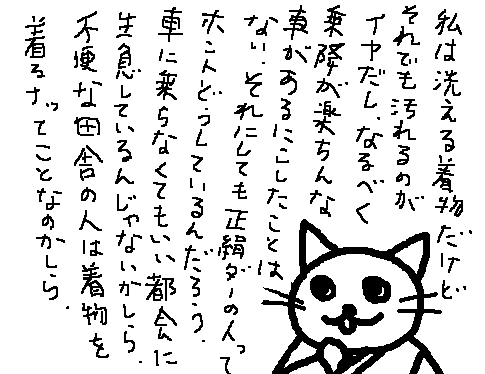 私は洗える着物だけど
それでも汚れるのが
イヤだし、なるべく
乗降が楽ちんな
車があるにこしたことは
ない。それにしても正絹ダーの人って
ホントどうしているんだろう。
車に乗らなくてもいい都会に
生息しているんじゃないかしら。
不便な田舎の人は着物を
着るナってことなのかしら。